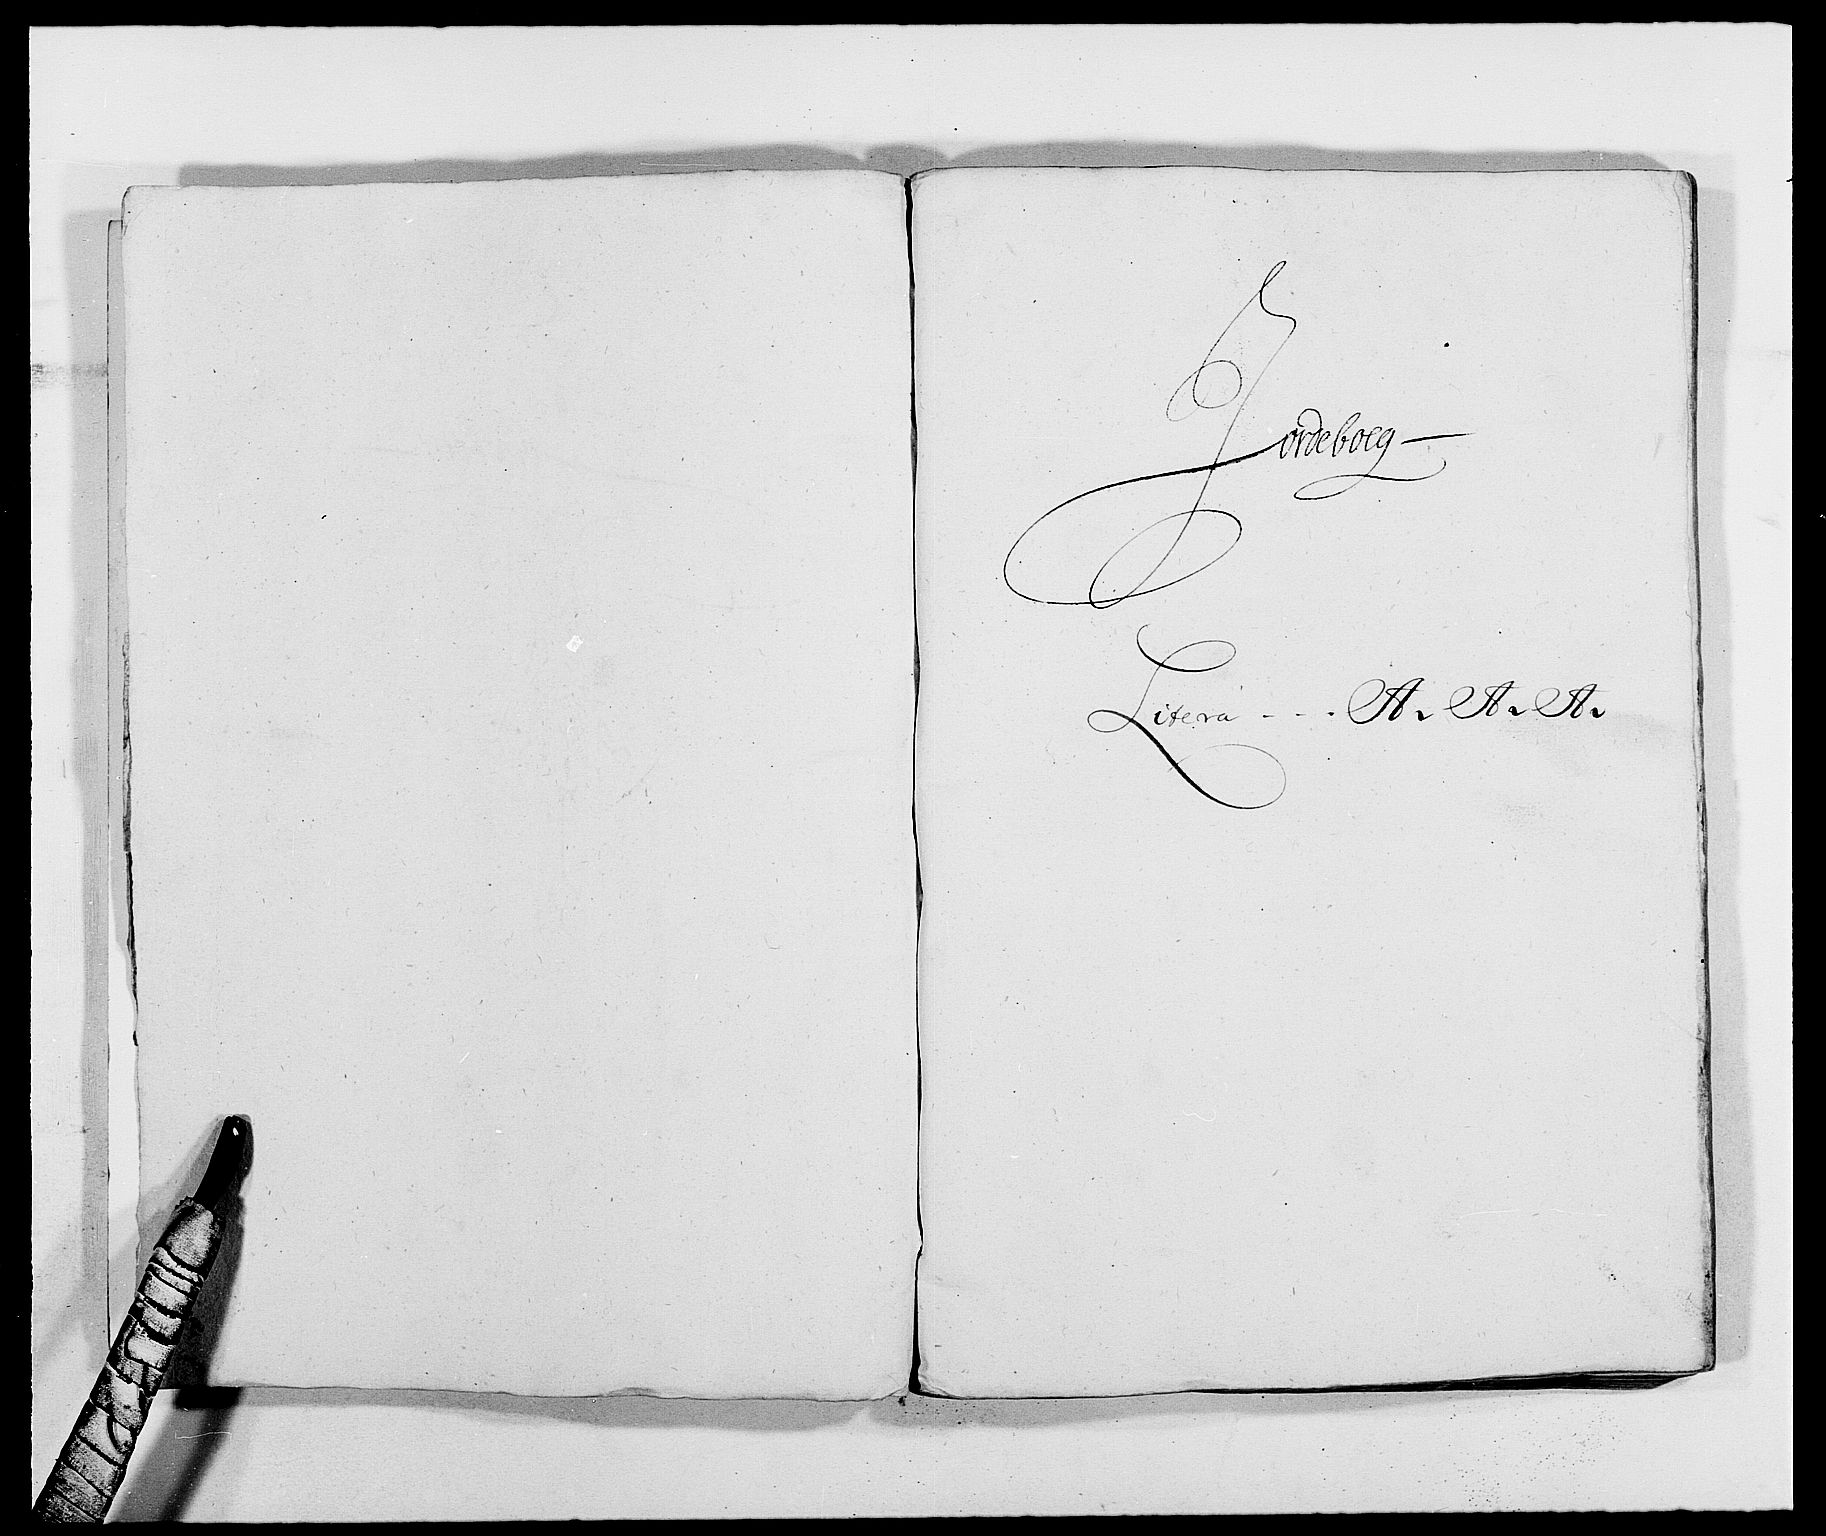 Jordeboeg —
Litera - - - A. A. A.